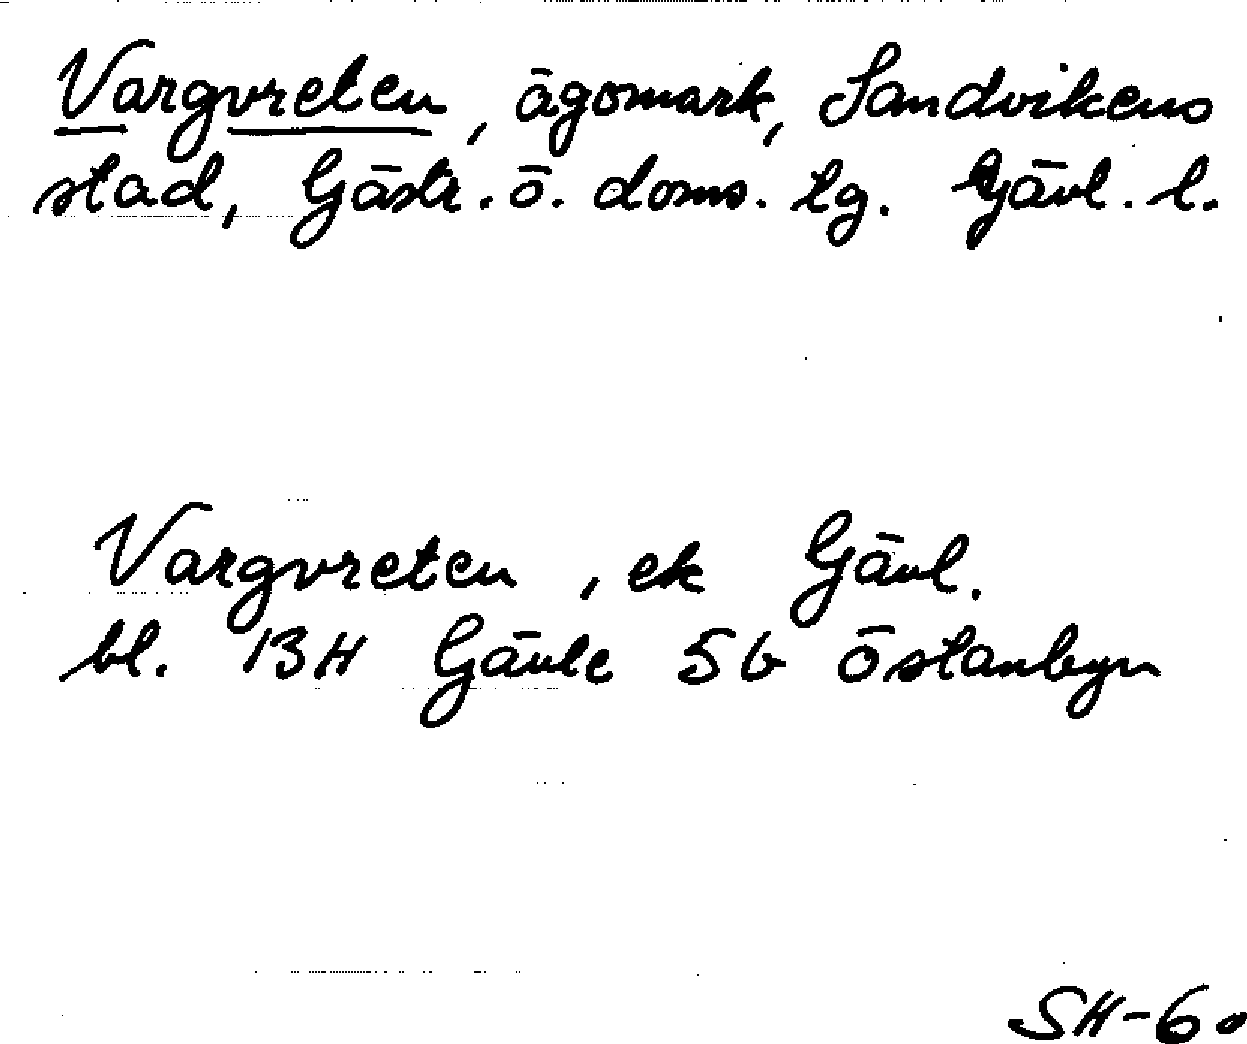 Vargvreten, ägomark, Sandvikens
stad, Gästr. ö. doms. tg. Gävl. l.
Vargvreten, ek Gävl.
bl. 13H Gävle 5b Östanbyn
SH-60